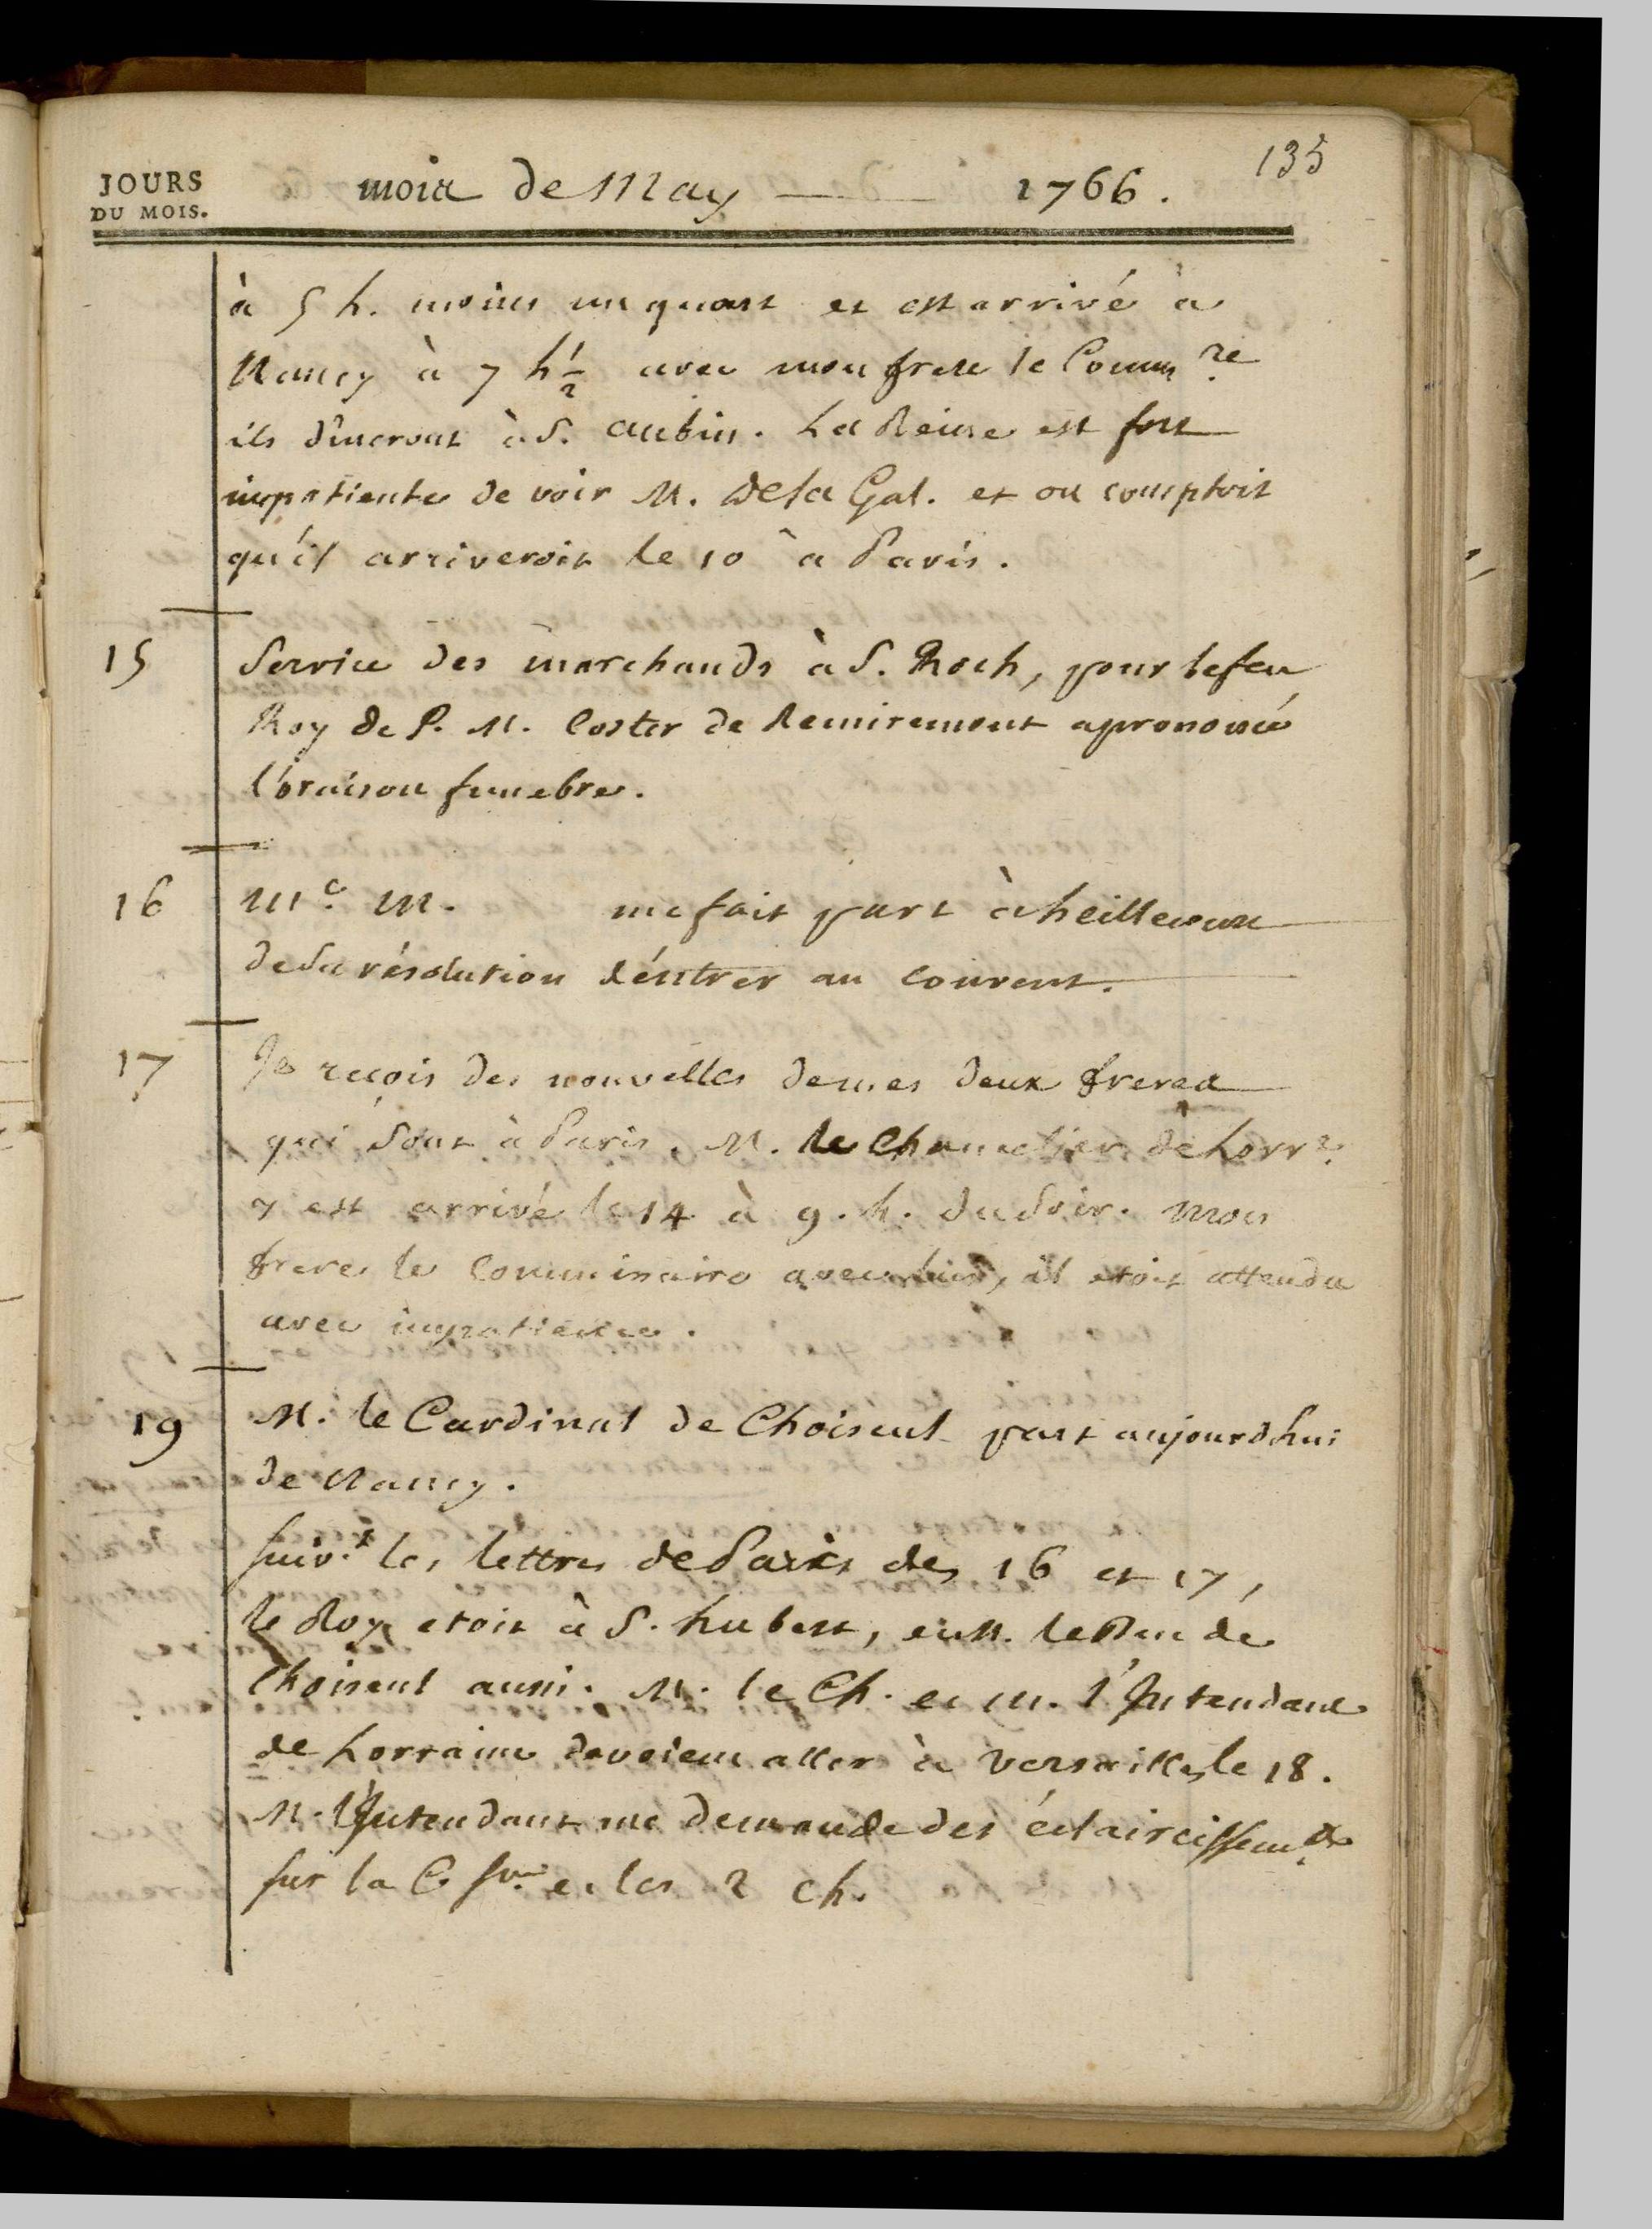 135
JOURS
DU MOIS.
mois de May 1766.
à 5 h. moins un quart et est arrivé a
Nancy à 7 h 1/2 avec mon frere le Comm.re
ils dîneront à S. Aubin. La Reine est fort
impatiente de voir M. de la Gal. et on comptoit
qu'il arriveroit le 10 a Paris.
15 Service des marchands à S. Roch, pour le feu
Roy de P. M. Coster de Remiremont a prononcé
l'oraison funebre.
16 M.e M. me fait part à heillecourt
de sa résolution d'entrer au couvent.
17 Je reçois des nouvelles de mes deux freres
qui sont à Paris. M. le Chancelier de Lorr.e
y est arrivé le 14 à 9. h. du soir. mon
frere le Commissaire avec lui, il etoit attendu
avec impatience.
19 M. le Cardinal de Choiseul part aujourdhui
de Nancy.
suiv.t les lettres de Paris des 16 et 17,
le Roy etoit à S. hubert, et M. le Duc de
Choiseul aussi. M. le Ch. et M. l'Intendant
de Lorraine devoient aller à Versailles le 18.
M. l'Intendant me demande des éclaircissem.ts
sur la C. et les 2 ch.